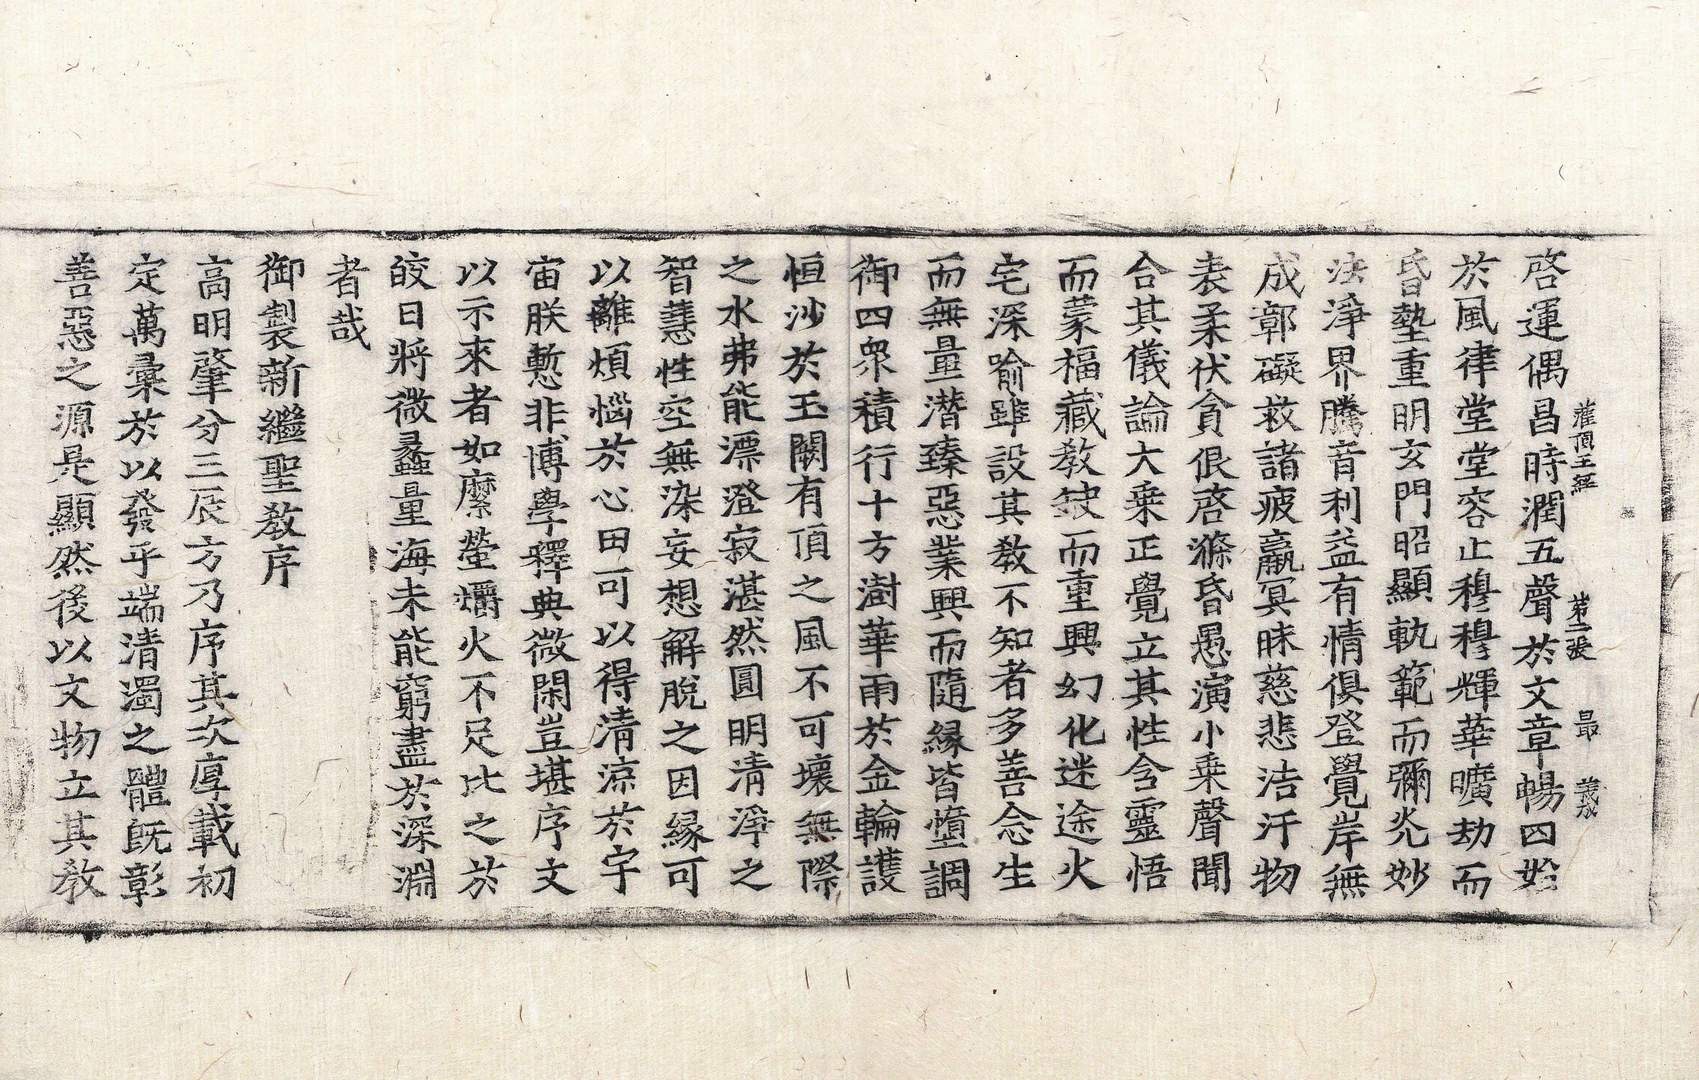 灌頂王經 第二張 最 義成
啓運偶昌時潤五聲於文章暢四始
於風律堂堂容止穆穆輝華曠劫而
昏墊重明玄門昭顯軌範而彌光妙
法淨界騰音利益有情俱登覺岸無
成鄣礙救諸疲羸冥昧慈悲浩汗物
表柔伏貪佷啓滌昏愚演小乗聲聞
合其儀論大乗正覺立其性含靈悟
而蒙福藏教缺而重興幻化迷途火
宅深喻雖設其教不知者多善念生
而無量潛臻惡業興而隨縁皆墮調
御四衆積行十方澍華雨於金輪護
恒沙於玉闕有頂之風不可壞無際
之水弗能漂澄寂湛然圓明清淨之
智慧性空無染妄想解脫之因縁可
以離煩惱於心田可以得清涼於宇
宙朕慙非博學釋典微閑豈堪序文
以示來者如縻螢爝火不足比之於
皎日將微蠡量海未能窮盡於深淵
者哉
御製新繼聖教序
高明肇分三辰方乃序其次厚載初
定萬彙於以發乎端清濁之體旣彰
善惡之源是顯然後以文物立其教